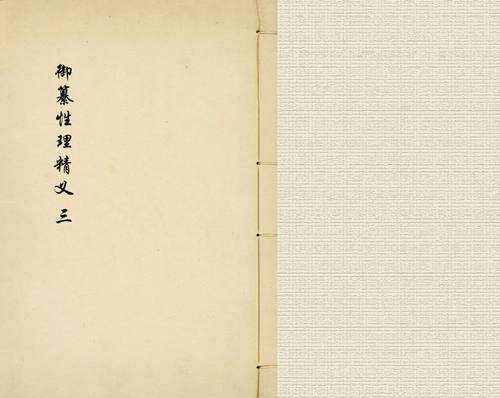 御纂性理精义三